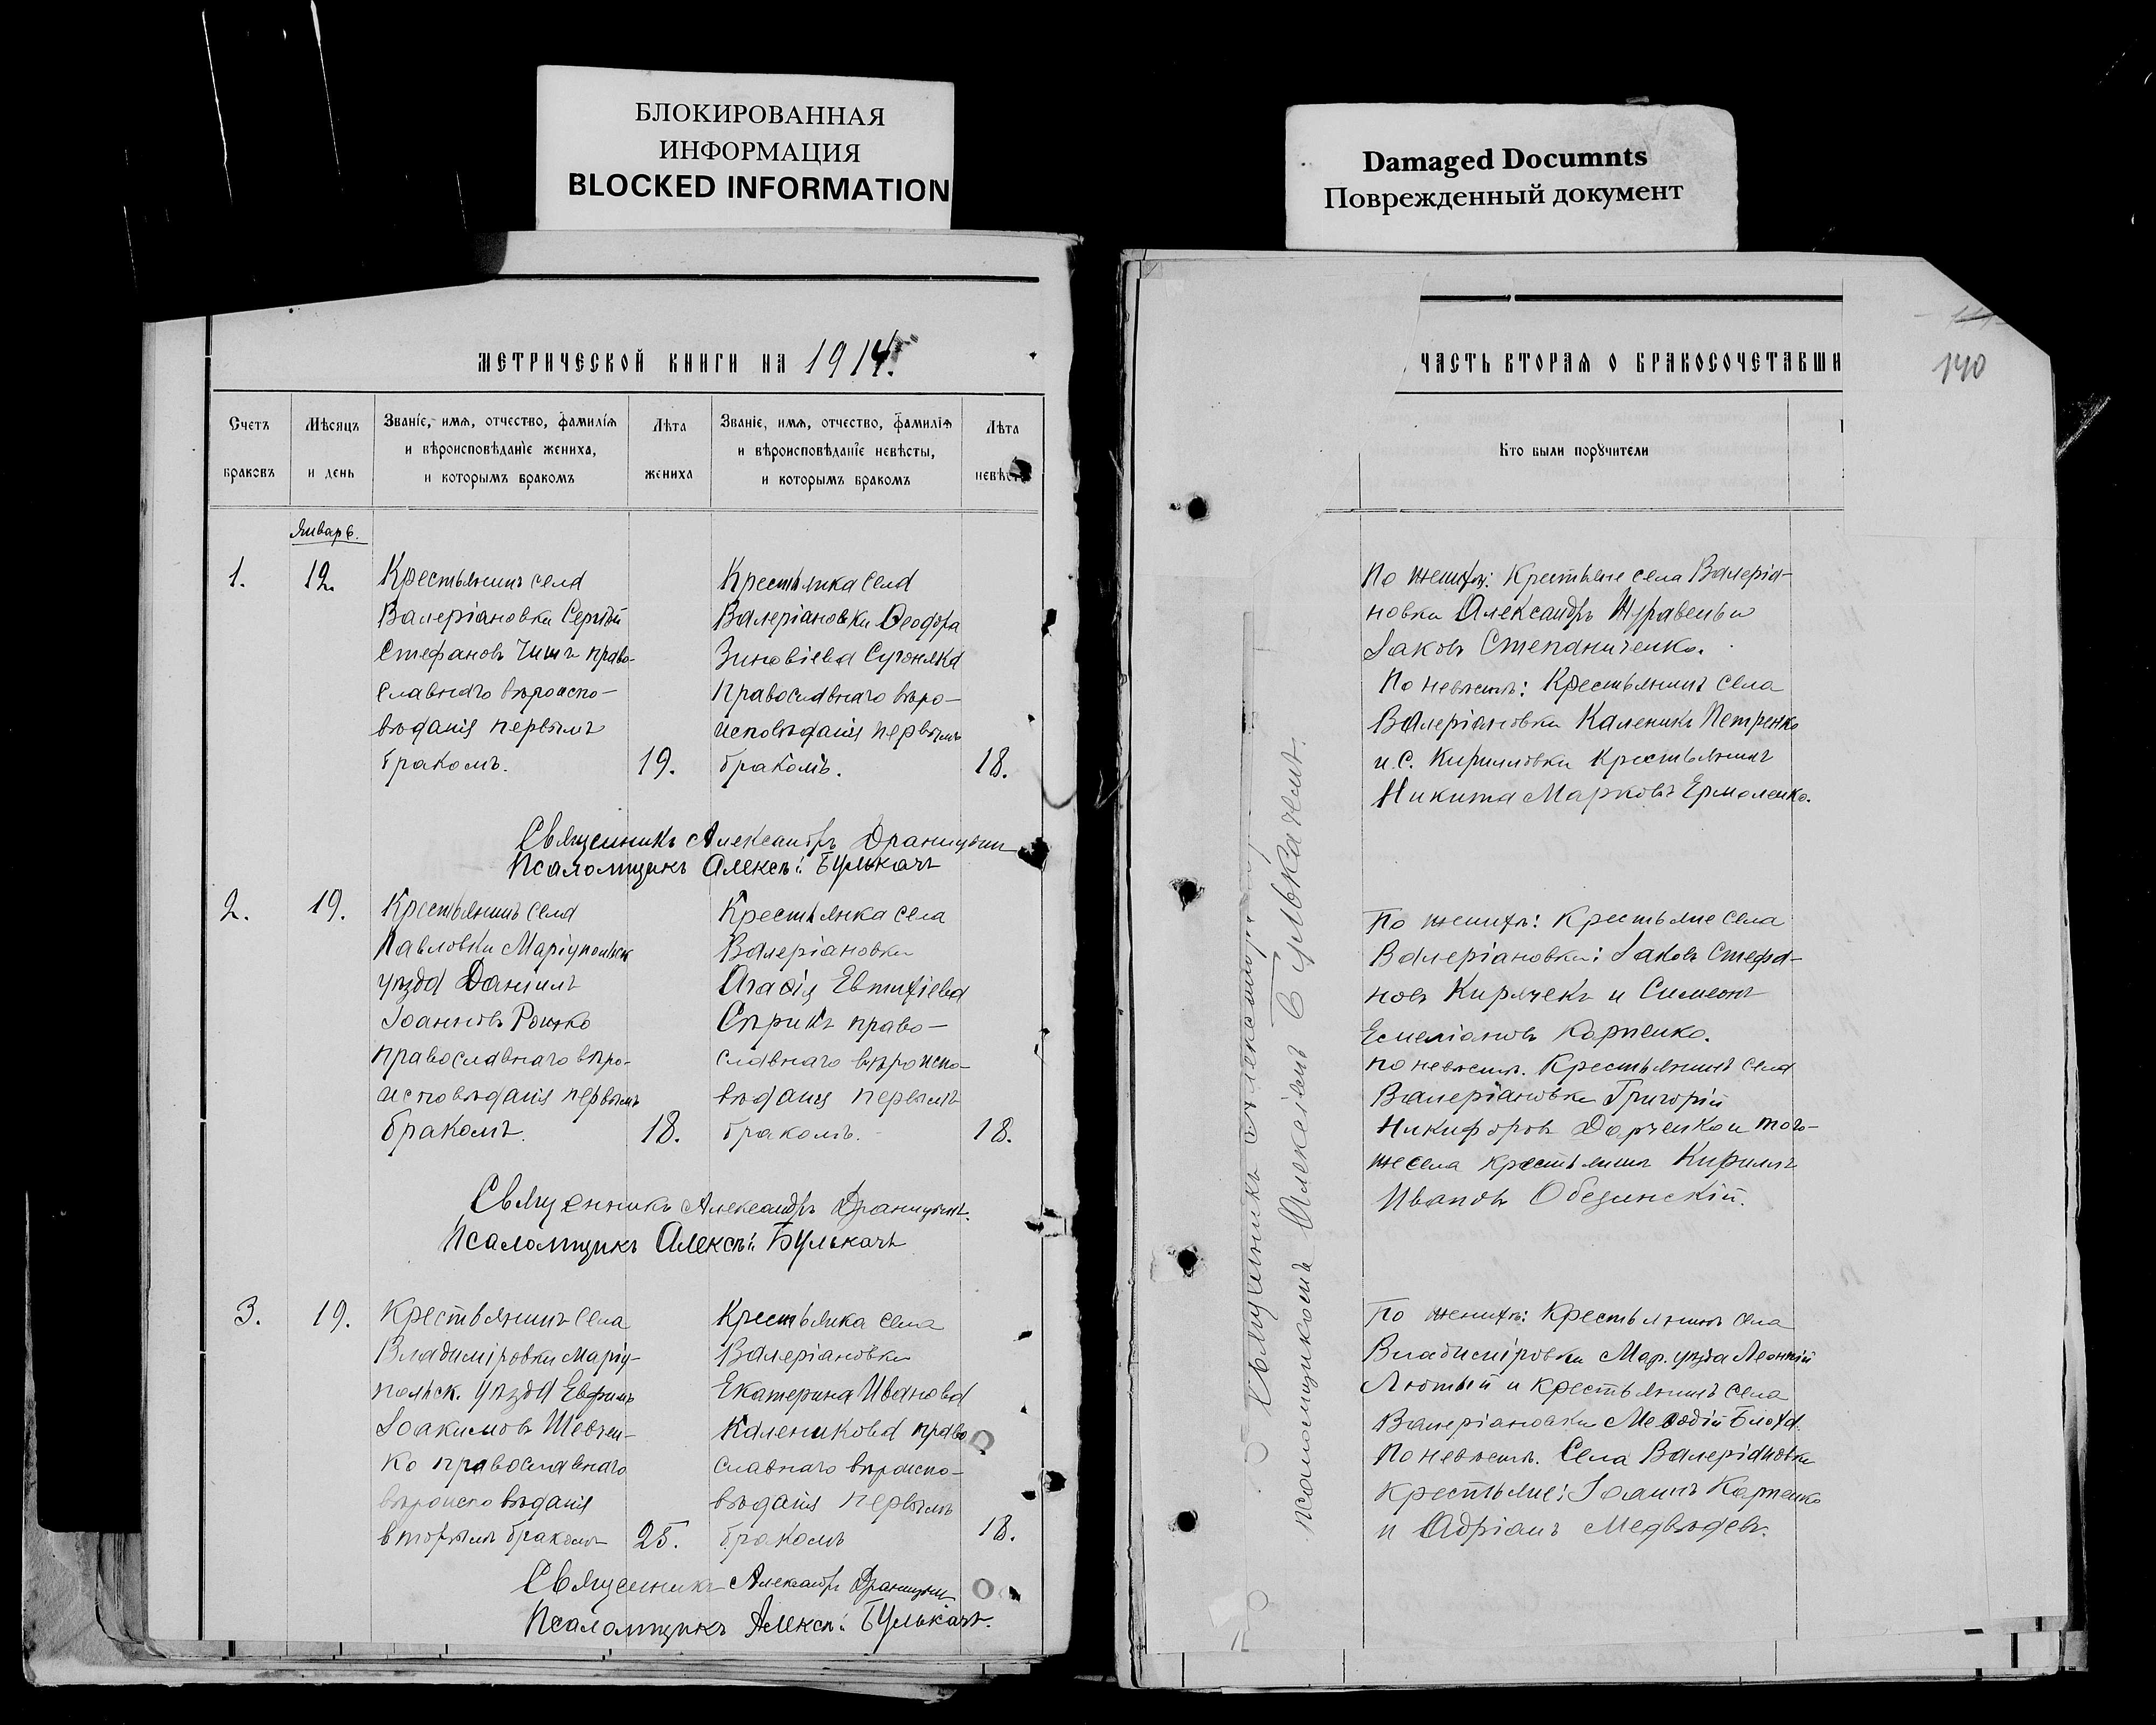 БЛОКИРОВАННАЯ
ИНФОРМАЦИЯ
BLOCKED INFORMATION
МЕТРИЧЕСКОЙ КНИГИ НА 1914.
Счетъ
браковъ
Мѣсяцъ
и день
Званіе, имя, отчество, фамилія
и вѣроисповѣданіе жениха,
и которымъ бракомъ
Лѣта
жениха
Званіе, имя, отчество, фамилія
и вѣроисповѣданіе невѣсты,
и которымъ бракомъ
Лѣта
невѣс
Январь.
1.
12.
Крестьянинъ села
Валеріановки Сергѣй
Стефановъ Чишъ право-
славнаго вѣроиспо-
вѣданія первымъ
бракомъ.
19.
Крестьянка села
Валеріановки Ѳеодора
Зиновіева Сугоняка
православнаго вѣро-
исповѣданія первымъ
бракомъ.
18.
Священникъ Александръ
Псаломщикъ Алексѣй Булькачъ
2.
19.
Крестьянинъ села
Павловки Маріупольск
уѣзда Даніилъ
Іоанновъ
православнаго вѣро-
исповѣданія первымъ
бракомъ.
18.
Крестьянка села
Валеріановки
Агаѳія Евтихіева
Сприкъ право-
славнаго вѣроиспо-
вѣданія первымъ
бракомъ.
18.
Священникъ Александръ
Псаломщикъ Алексѣй Булькачъ
3.
19.
Крестьянинъ села
Владиміровки Маріу-
польск. уѣзда Евфимъ
Іоакимовъ Шевчен-
ко православнаго
вѣроисповѣданія
вторымъ бракомъ
25.
Крестьянка села
Валеріановки
Екатерина Иванова
Каленикова право
славнаго вѣроиспо-
вѣданія первымъ
бракомъ
18.
Священникъ Александръ
Псаломщикъ Алексѣй Булькачъ.
Damaged Documnts
Поврежденный документ
ЧАСТЬ ВТОРАЯ О БРАКОСОЧЕТАВШИ
140
Кто были поручители
По женихѣ: Крестьяне села Валеріа-
новки Александръ Журавель и
Іаковъ Степаниченко.
По невѣстѣ: Крестьянинъ села
Валеріановки Каленикъ Петренко
и С. Кирилловки Крестьянинъ
Никита Марковъ Ермоленко.
По женихѣ: Крестьяне села
Валеріановки: Іаковъ Стефа-
новъ Кирячекъ и Симеонъ
Емеліановъ Карпенко.
По невѣстѣ. Крестьянинъ села
Валеріановки Григорій
Никифоровъ и того-
же села крестьянинъ Кириллъ
Ивановъ
По женихѣ: Крестьянинъ села
Владиміровки Мар. уѣзда Леонтій
Лютый и крестьянинъ села
Валеріановки Меѳодій Блоха.
По невѣстѣ. Села Валеріановки
крестьяне: Іоаннъ Карпенко
и Адріанъ Медвѣдевъ.
псаломщикомъ Алексѣемъ Булькачемъ.